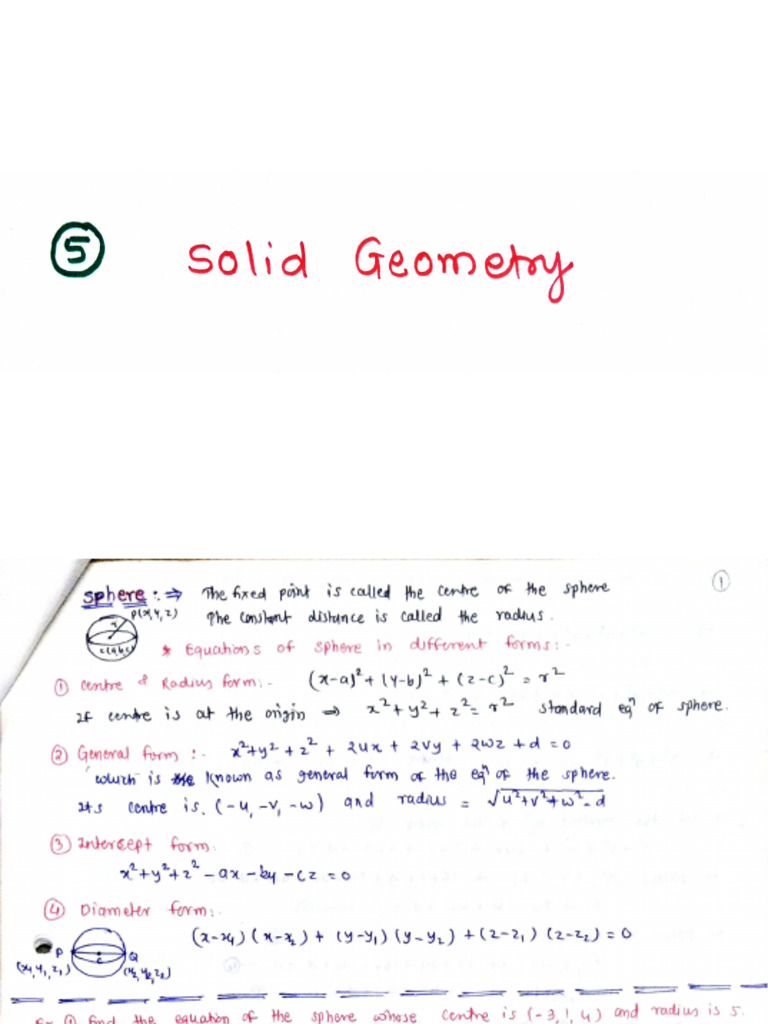 5 Solid Geometry
1
Sphere :- ⇒ The fixed point is called the centre of the sphere
P(x,y,z) The constant distance is called the radius.
r
c(a,b,c)
* Equations of sphere in different forms:-
① Centre & Radius form:- (x-a)² + (y-b)² + (z-c)² = r²
If centre is at the origin ⇒ x² + y² + z² = r² standard eqⁿ of sphere.
② General form :- x²+y²+z² + 2ux + 2vy + 2wz + d = 0
which is known as general form of the eqⁿ of the sphere.
Its centre is (-u, -v, -w) and radius = √u²+v²+w²-d
③ Intercept form:
x²+y²+z² - ax - by - cz = 0
④ Diameter form:.
(x-x₁) (x-x₂) + (y-y₁) (y-y₂) + (z-z₁) (z-z₂) = 0
P c Q
(x₁,y₁,z₁) (x₂,y₂,z₂)
Ex ① find the equation of the sphere whose centre is (-3,1,4) and radius is 5.